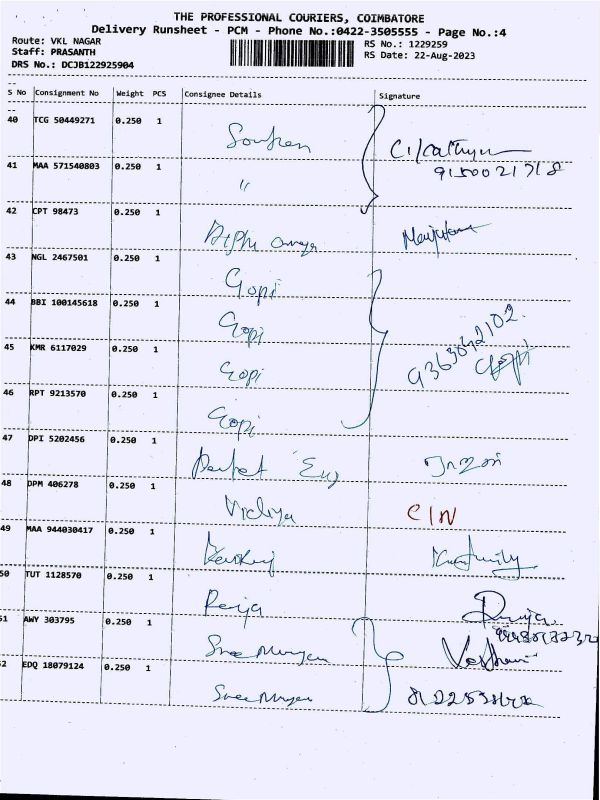 THE PROFESSIONAL COURIERS, COIMBATORE
Delivery Runsheet - PCM - Phone No.:0422-3505555 - Page No.:4
Route: VKL NAGAR
Staff: PRASANTH
DRS No.: DCJB122925904
RS No.: 1229259
RS Date: 22-Aug-2023
S No Consignment No Weight PCS Consignee Details Signature
40 TCG 50449271 0.250 1
41 MAA 571540803 0.250 1 〃
42 CPT 98473 0.250 1
43 NGL 2467501 0.250 1 Gopi
44 BBI 100145618 0.250 1 Gopi
45 KMR 6117029 0.250 1 Gopi
46 RPT 9213570 0.250 1 Gopi
47 DPI 5202456 0.250 1
48 DPM 406278 0.250 1 Vidiya C/N
49 MAA 944030417 0.250 1
50 TUT 1128570 0.250 1
51 AWY 303795 0.250 1 Sree Murugan
52 EDQ 18079124 0.250 1 Sree Murugan